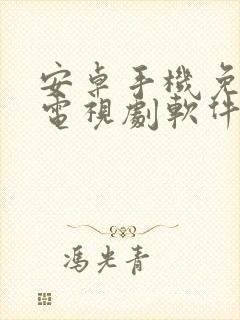 安卓手機免
電視劇軟件
馮光青